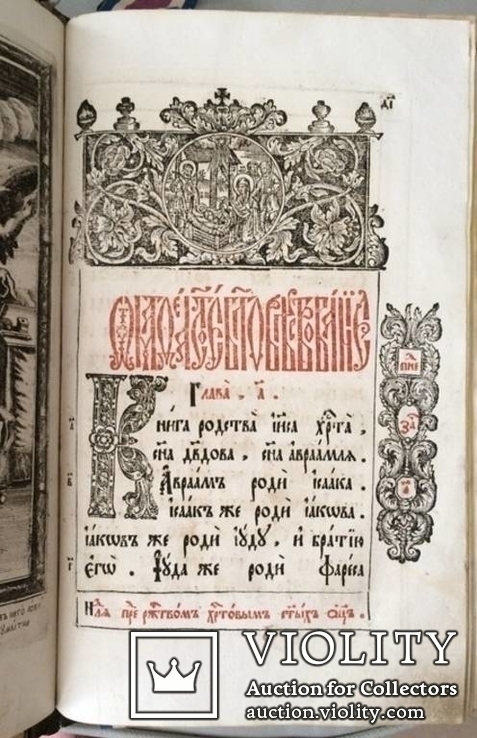 д҃і
Глава̀ , а҃ .
Кни́га родства̀ і҆и҃са хр҇та̀ ,
сн҃а дв҃дова , сн҃а авраа́мля .
в҃
Авраа́мъ родѝ і҆саа́ка .
І҆саа́къ же родѝ і҆а́кѡва .
І҆а́кѡвъ же родѝ і҆ꙋ́дꙋ , и҆ бра́тїю
г҃
є҆гѡ̀ . І҆ꙋ́да же родѝ фаре́са
Нл҇ѧ пре ржⷭ҇тво́мъ хр҇то́вымъ ст҃ы́хъ ѻ҆ц҃ъ .
VIOLITY
Auction for Collectors
auction.violity.com